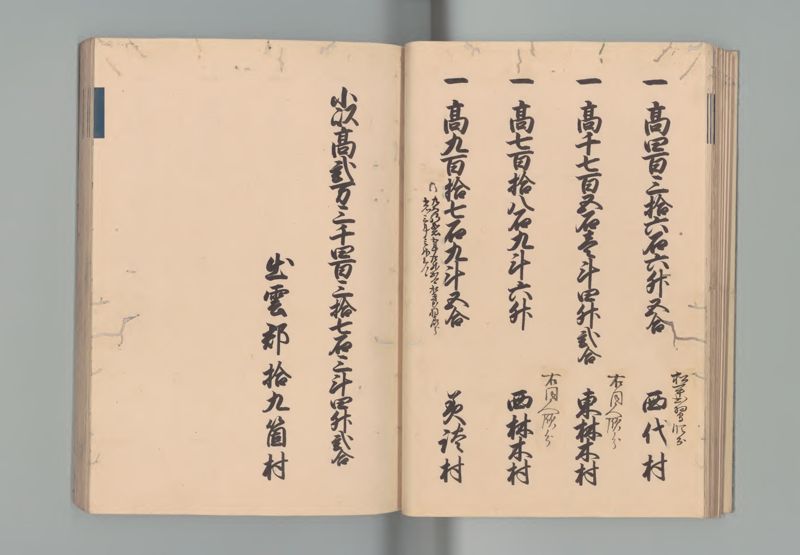 一 高四百三拾六石六升五合 西代村
一 高千七百五石壱斗四升弐合 東林木村
右同人領分
一 高七百拾八石九斗六升 西林木村
右同人領分
一 高九百拾七石九斗五合 美談村
小以高弐万三千四百三拾七石三斗四升弐合
出雲郡拾九箇村